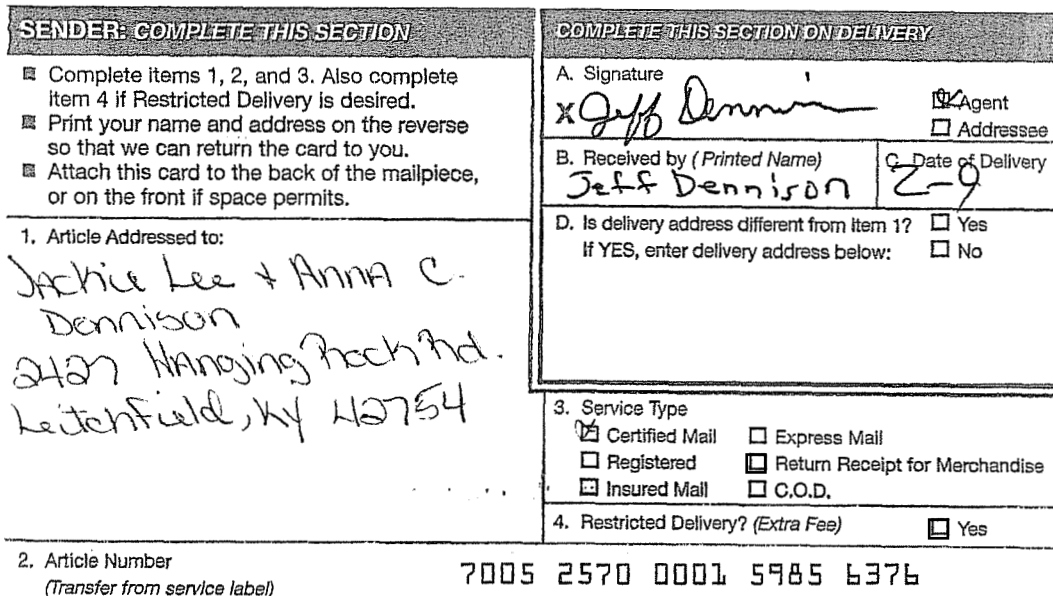 SENDER: COMPLETE THIS SECTION
Complete items 1, 2, and 3. Also complete
item 4 if Restricted Delivery is desired.
Print your name and address on the reverse
so that we can return the card to you.
Attach this card to the back of the mailpiece,
or on the front if space permits.
1. Article Addressed to:
Jackie Lee + Anna C.
Dennison
2427 Hanging Rock Rd.
Leitchfield, KY 42754
2. Article Number
(Transfer from service label)
7005 2570 0001 5985 6376
COMPLETE THIS SECTION ON DELIVERY
A. Signature
X Jeff Dennison
Agent
Addressee
B. Received by (Printed Name)
Jeff Dennison
C. Date of Delivery
2-9
D. Is delivery address different from item 1? Yes
If YES, enter delivery address below: No
3. Service Type
Certified Mail Express Mail
Registered Return Receipt for Merchandise
Insured Mail C.O.D.
4. Restricted Delivery? (Extra Fee) Yes